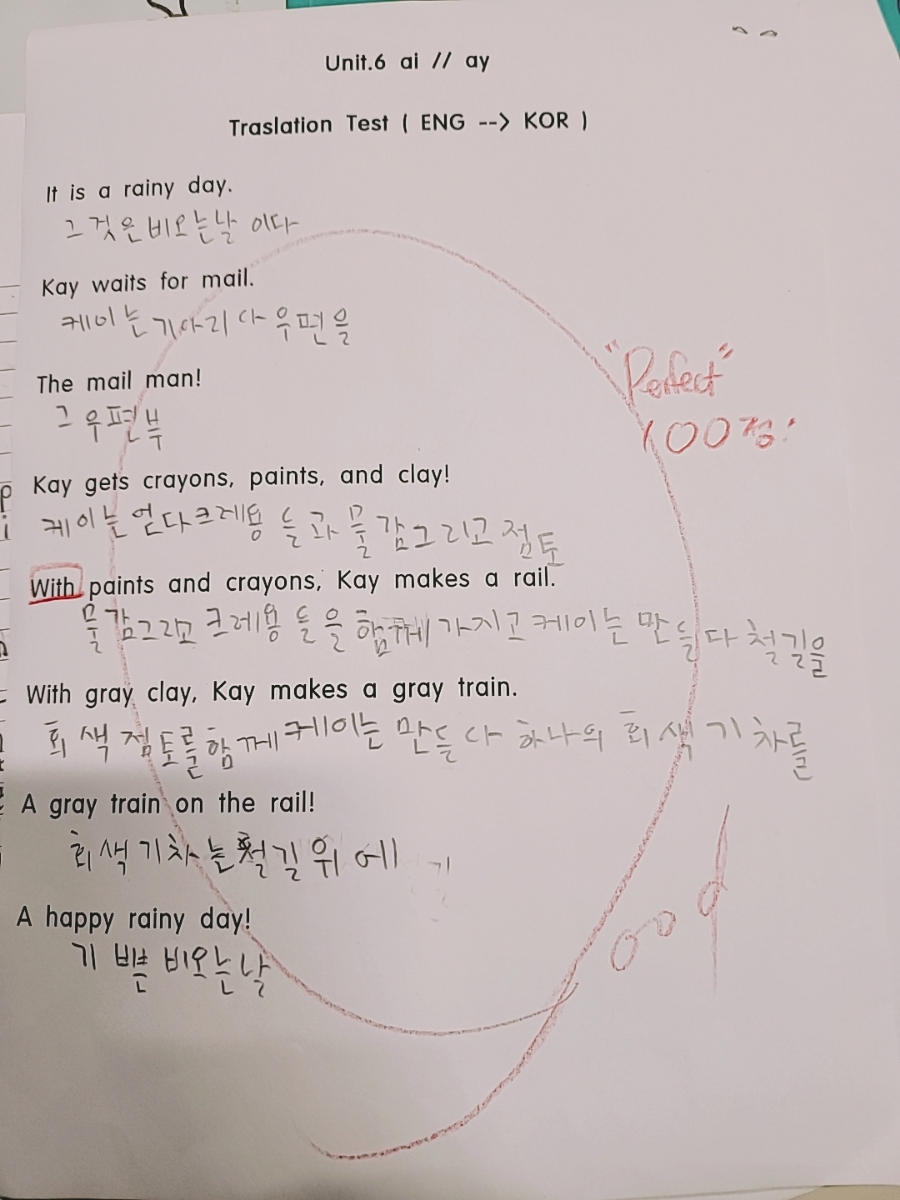 Unit.6 ai // ay
Traslation Test ( ENG --> KOR )
It is a rainy day.
그것은비오는날 이다
Kay waits for mail.
케이는기다리다우편을
The mail man!
그 우편부
"Perfect"
100점!
Kay gets crayons, paints, and clay!
케이는얻다크레용 들과 물감그리고 점토
With paints and crayons, Kay makes a rail.
물감그리고 크레용 들을 함께 가지고케이는 만들다 철길을
With gray clay, Kay makes a gray train.
회색 점토를함께케이는 만들다 하나의 회색 기차를
A gray train on the rail!
회색기차는철길위에
A happy rainy day!
기쁜비오는날
ood